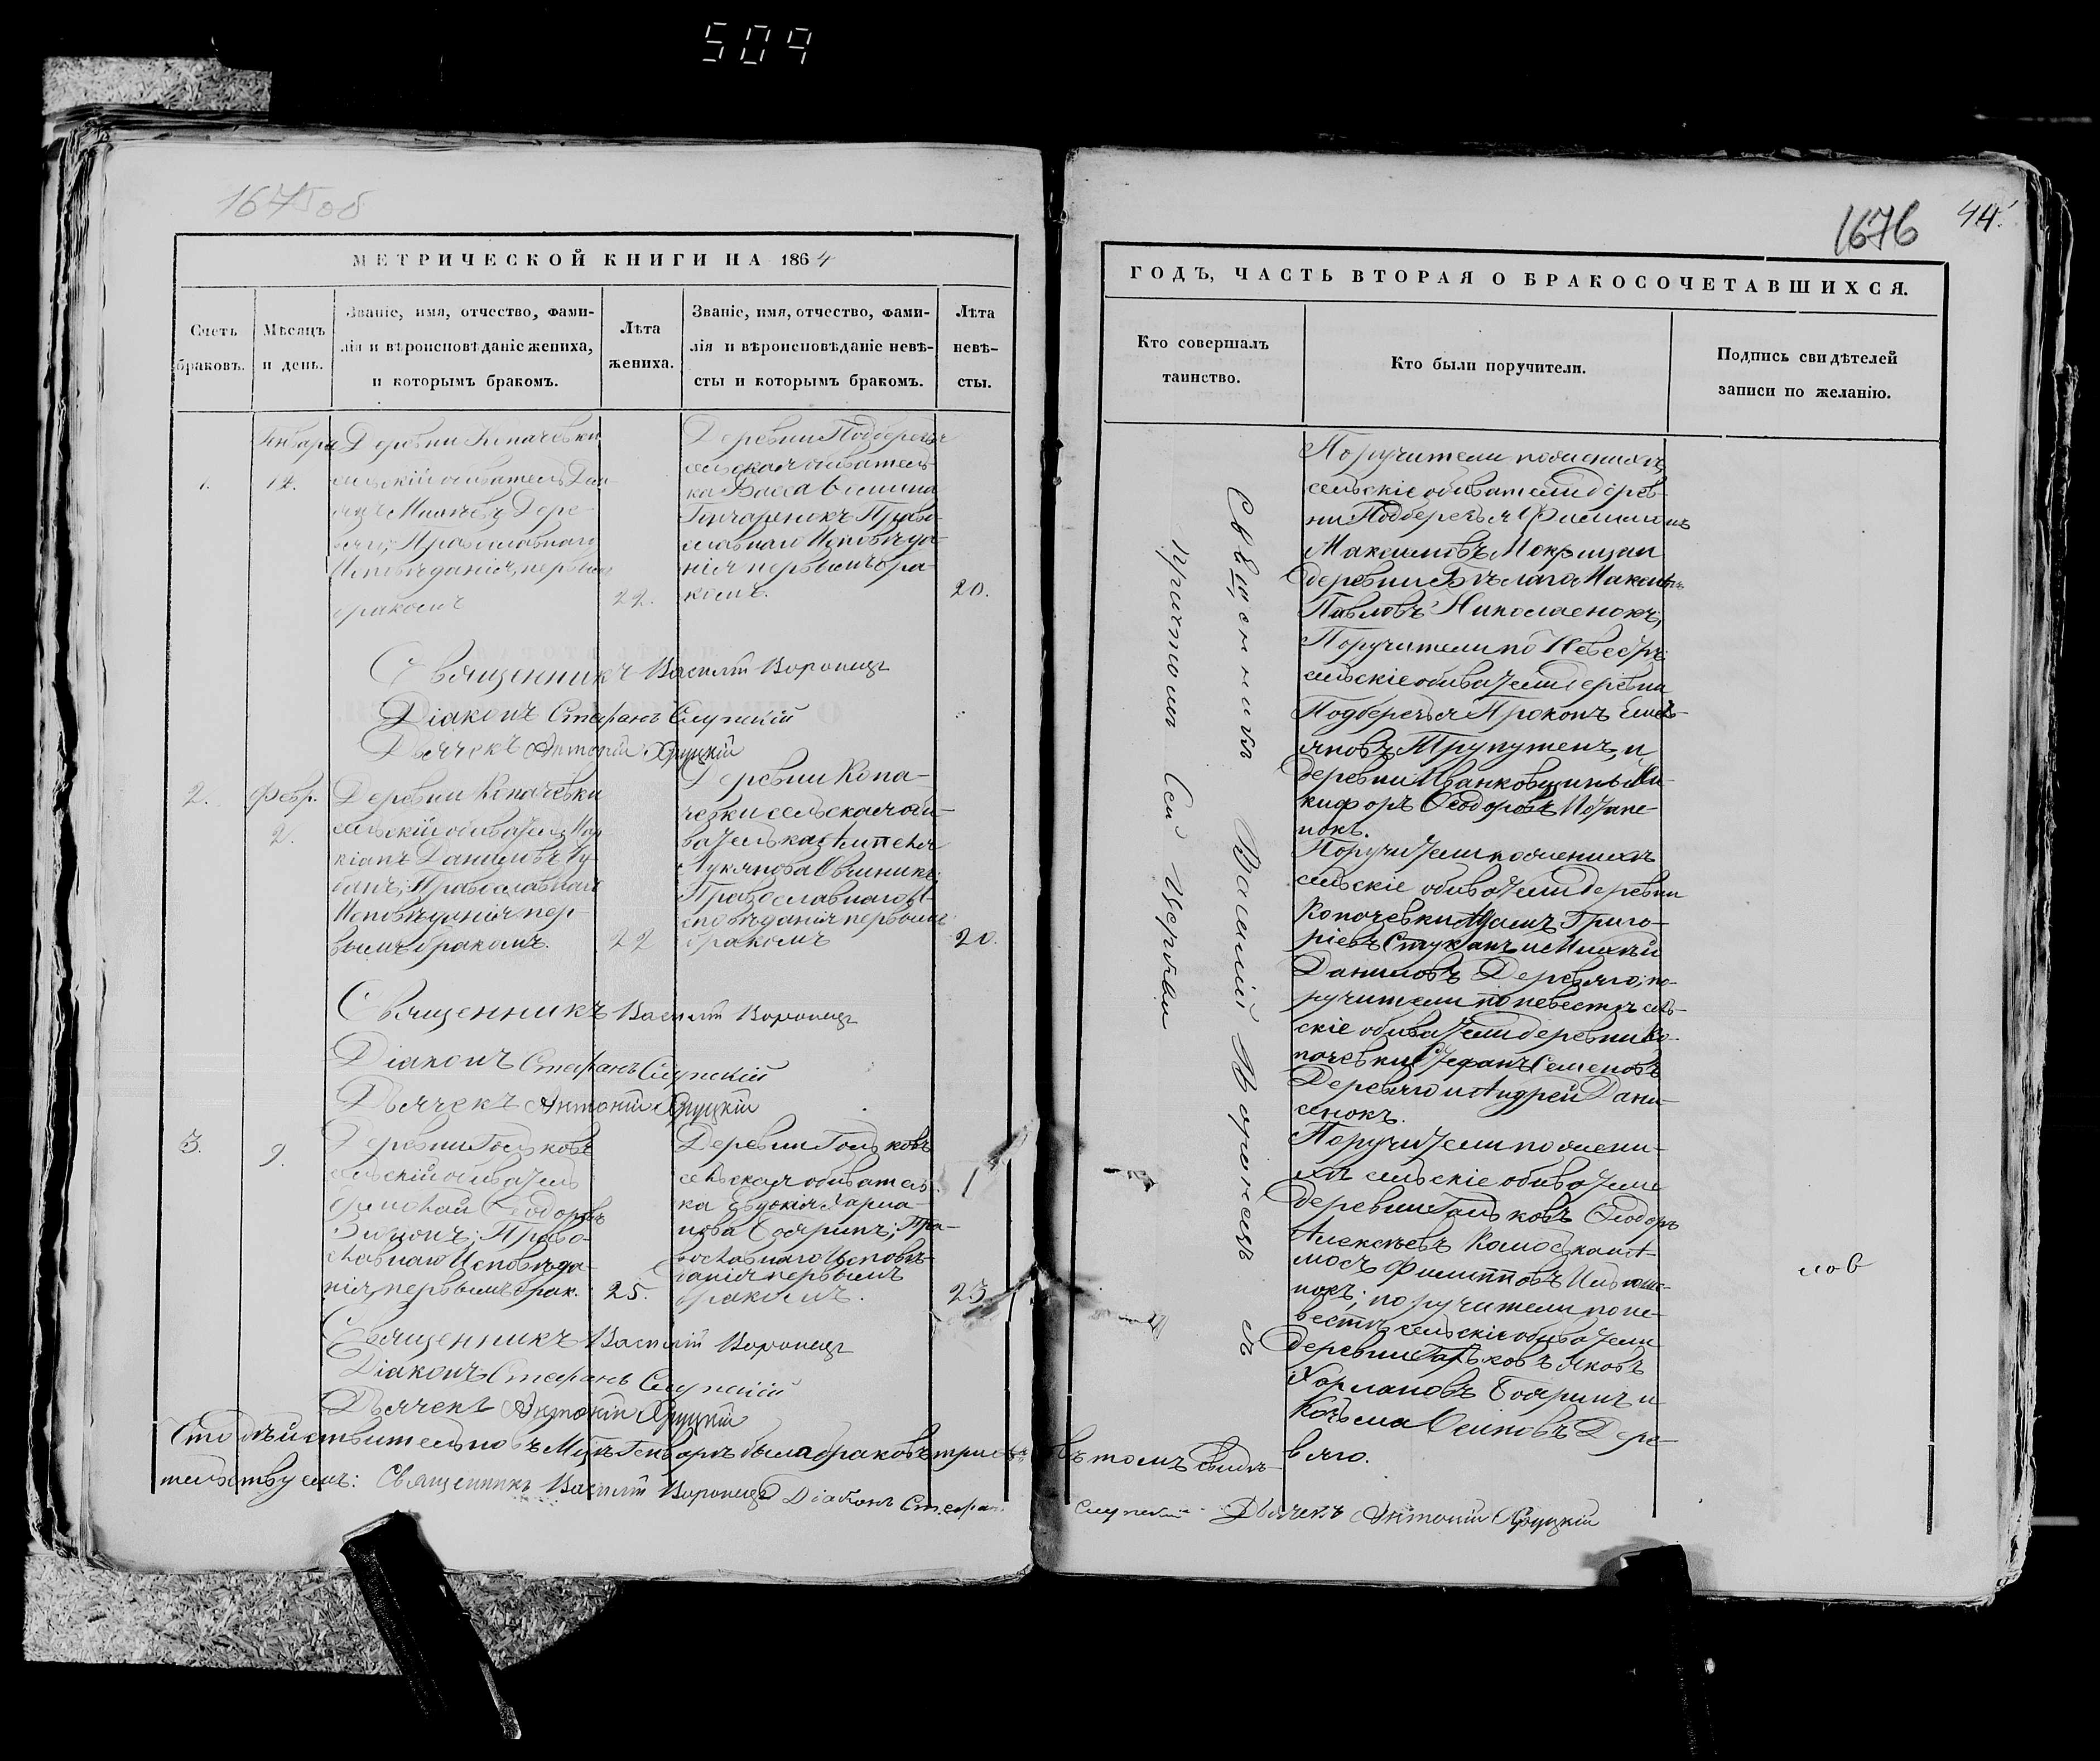 509
1675 об
МЕТРИЧЕСКОЙ КНИГИ НА 1864
Счетъ браковъ.
Мѣсяцъ и день.
Званіе, имя, отчество, фами-
лія и вѣроисповѣданіе жениха,
и которымъ бракомъ.
Лѣта жениха.
Званіе, имя, отчество, фами-
лія и вѣроисповѣданіе невѣ-
сты и которымъ бракомъ.
Лѣта невѣ-
сты.
1.
Января
12.
Деревни Копачевки
сельскій обыватель
Дере-
вяго, Православнаго
Исповѣданія, первымъ
бракомъ
22.
Деревни Подберезья
сельская обыватель-
ка Васса Осипова
Гончаренокъ Право-
славнаго Исповѣда-
нія первымъ бра-
комъ.
20.
Священникъ Василій Воронецъ
Діаконъ Стефанъ Слупскій
Дьячекъ Антоній Хруцкій
2.
Февр.
2.
Деревни Копачевки
сельскій обыватель Мар-
кіанъ Даниловъ
Православнаго
Исповѣданія пер-
вымъ бракомъ.
22
Деревни Копа-
чевки сельская обы-
вателька
Лукянова
Православнаго И-
сповѣданія первымъ
бракомъ
20.
Священникъ Василій Воронецъ
Діаконъ Стефанъ Слупскій
Дьячекъ Антоній Хруцкій
3.
9.
Деревни Гольковъ
сельскій обыватель
Феодоровъ
Право-
славнаго Исповѣда-
нія, первымъ брак.
25.
Деревни Гольковъ
сельская обыватель-
ка Евдокія Харла-
нова Бояринъ; Пра-
вославнаго Исповѣ-
данія первымъ
бракомъ.
23
Священникъ Василій Воронецъ
Діаконъ Стефанъ Слупскій
Дьячекъ Антоній Хруцкій
Что дѣйствительно въ Мцѣ Генварѣ было браковъ три въ томъ свидѣ-
тельствуемъ: Священникъ Василій Воронецъ Діаконъ Стефанъ
Слупскій Дьячекъ Антоній Хруцкій
1676
44.
ГОДЪ, ЧАСТЬ ВТОРАЯ О БРАКОСОЧЕТАВШИХСЯ.
Кто совершалъ
таинство.
Кто были поручители.
Подпись свидѣтелей
записи по желанію.
Священникъ Василій Воронецъ съ
причтомъ Сей Церкви
Поручители по женихѣ
сельскіе обыватели дерев-
ни Подберезья Филимонъ
Максимовъ Мокрицан
деревни Бѣлаго
Павловъ Николаенокъ;
Поручители по Невестѣ
сельскіе обыватели деревни
Подберезья Прокопъ Емель-
яновъ и
деревни Иванковщины Ни-
кифоръ Феодоровъ Потапе-
нокъ.
Поручители по женихѣ
сельскіе обыватели деревни
Копачевки Адамъ Григо-
ріевъ Стуканъ и
Даниловъ Деревяго; по-
ручители по невестѣ сель-
скіе обыватели деревни Ко-
пачевки Стефанъ Семеновъ
Деревяго и Андрей Дани-
ленокъ.
Поручители по жени-
хѣ сельскіе обыватели
деревни Гольковъ Феодоръ
Алексѣевъ
Филипповъ Ильюше-
нокъ; поручители по не-
вестѣ сельскіе обыватели
деревни Гольковъ Яковъ
Харлановъ Бояринъ и
Козьма Осиповъ Дере-
вяго.